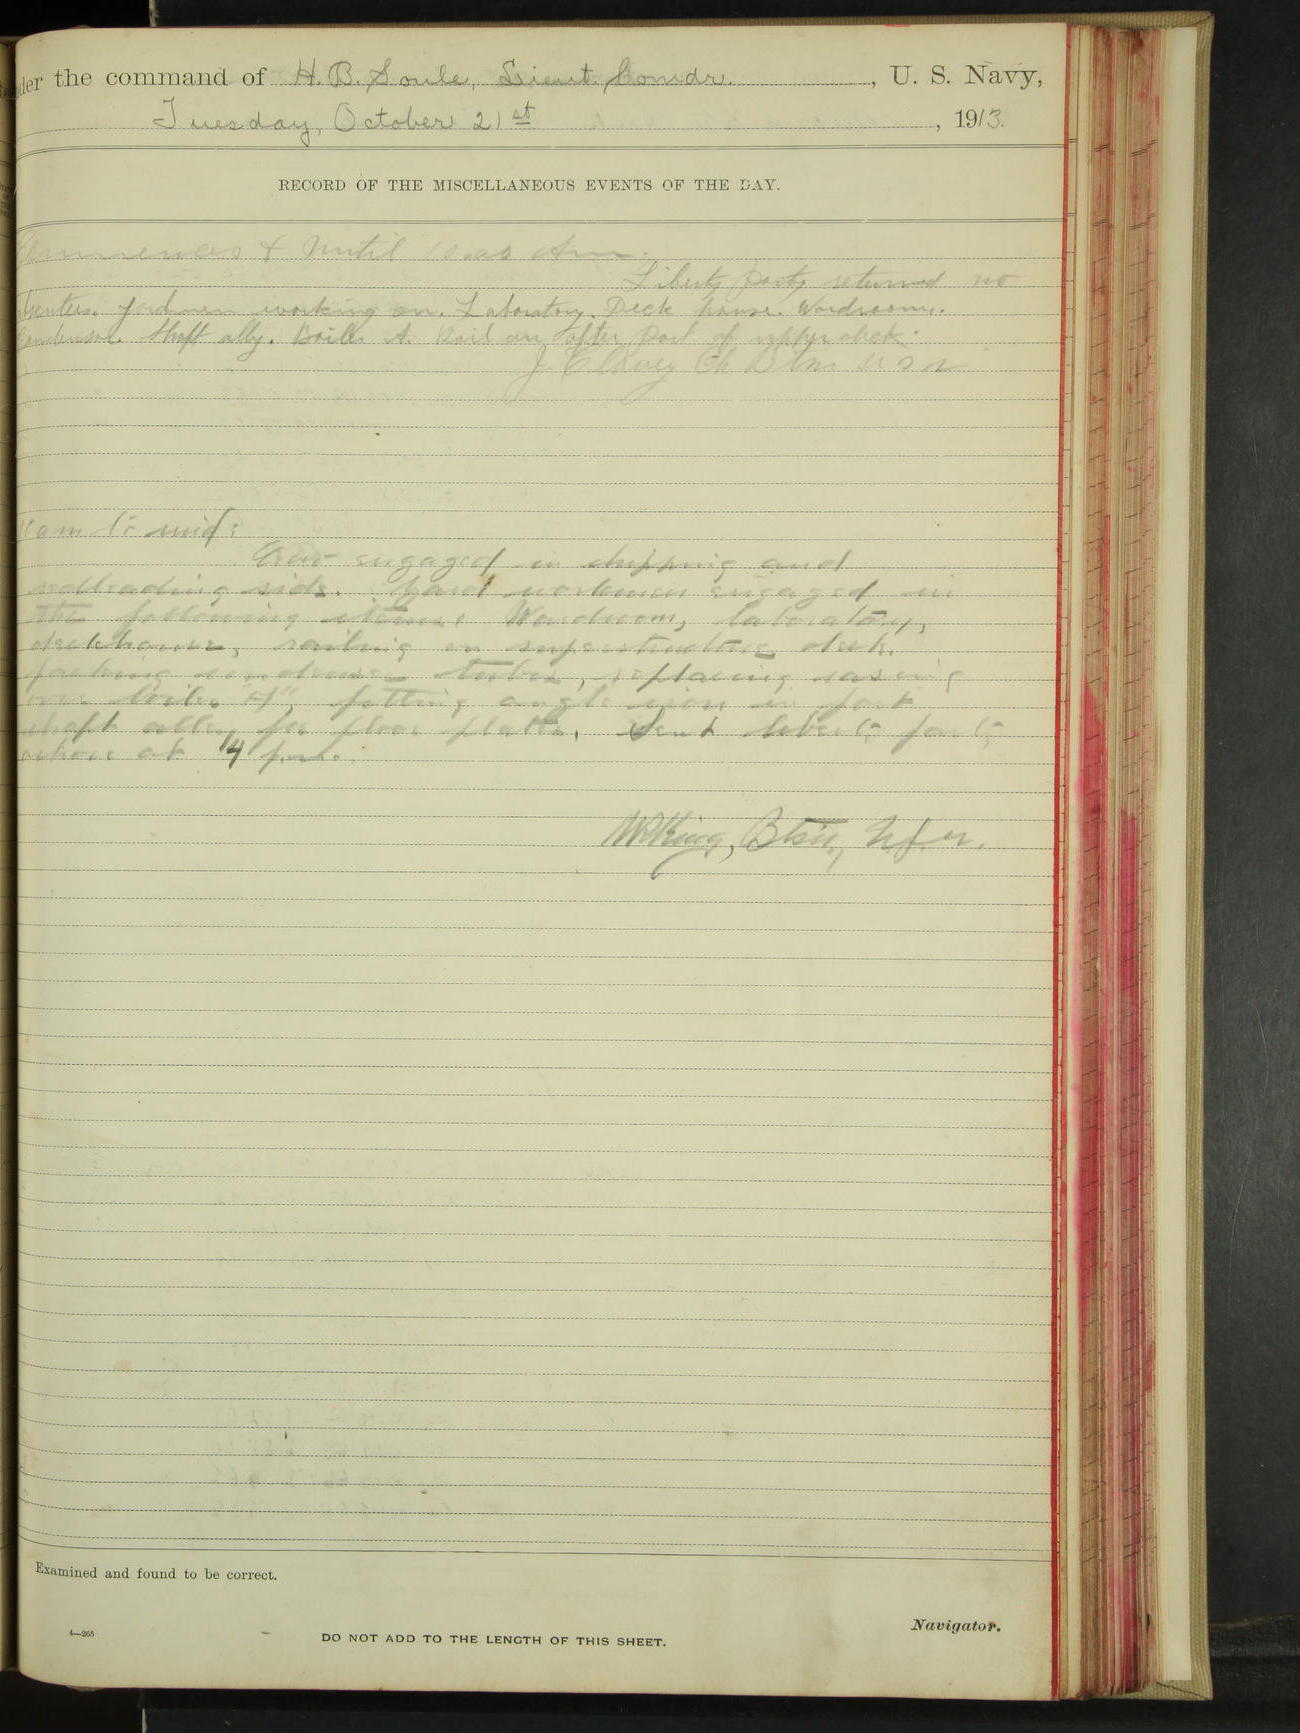 der the command of H. B. Soule, Lieut. Comdr. , U. S. Navy,
Tuesday, October 21st , 1913.
RECORD OF THE MISCELLANEOUS EVENTS OF THE DAY.
& until 10.00 Am.
Liberty party returned no
absentees. yardmen working on. Laboratory. Deck house. Wardroom.
Condensor. Shaft ally. Boiler A. Rail on after part of upper deck.
J. Clovey Ch Btsn U S N
10 am to mid:
Crew engaged in chipping and
redleading side. Yard workmen engaged in
the following items: Wardroom, laboratory,
deckhouse, railing on superstructure deck.
packing condenser tubes, replacing casing
over boiler "A", fitting angle iron in port
shaft alley for floor plates. Sent liberty party
ashore at 4 p.m.
King, Btsn, U.S.N.
Examined and found to be correct.
4—265
DO NOT ADD TO THE LENGTH OF THIS SHEET.
Navigator.